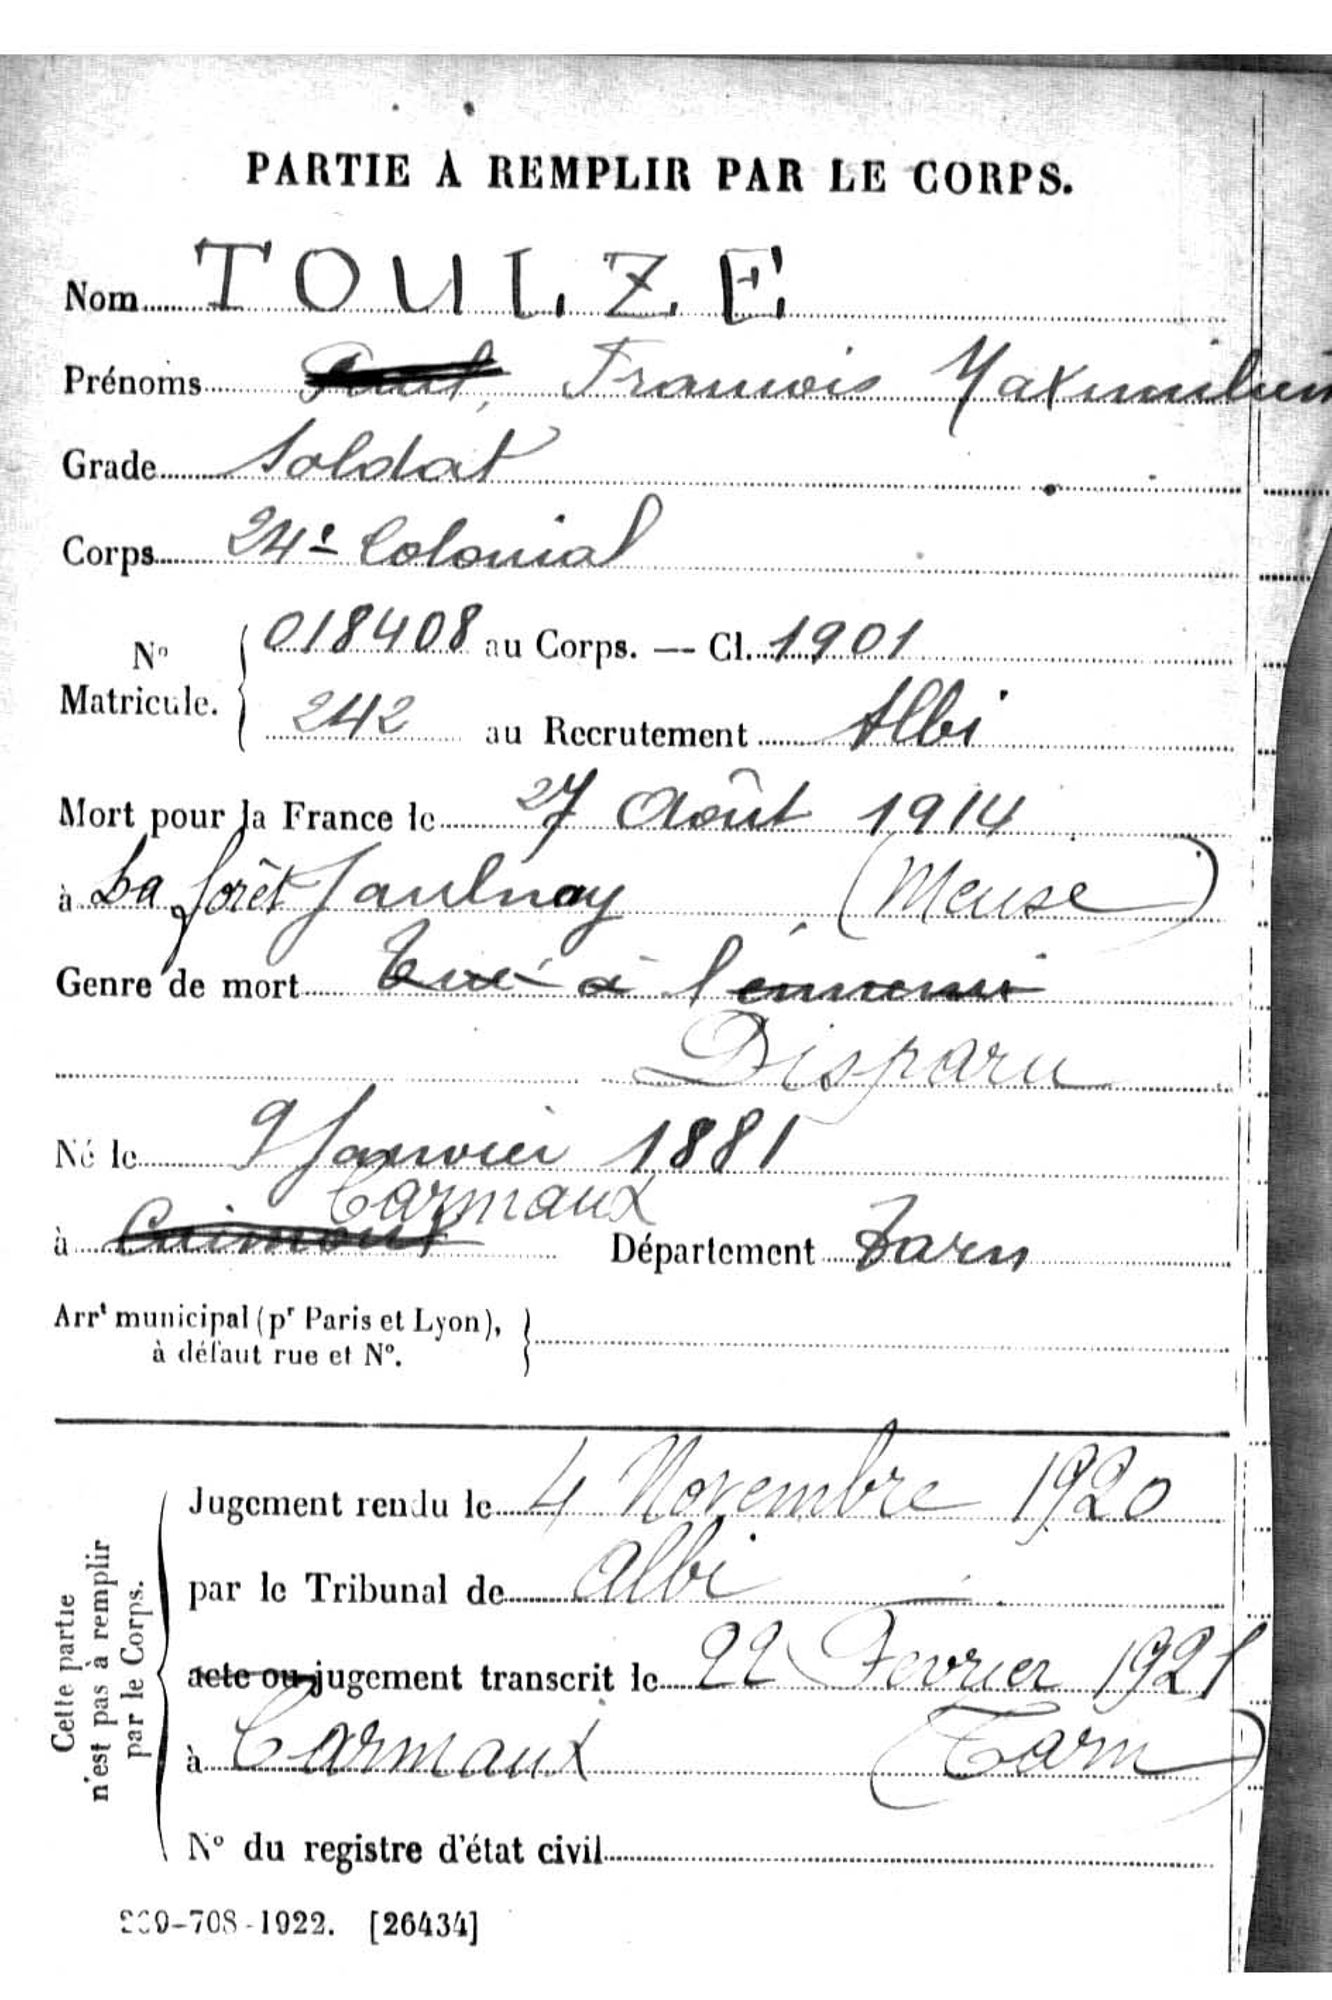 PARTIE À REMPLIR PAR LE CORPS.
Nom TOULZE
Prénoms Paul, Francois Maximilien
Grade Soldat
Corps 24e Colonial
No Matricule. { 018408 au Corps. — Cl. 1901
242 au Recrutement Albi
Mort pour la France le 27 Août 1914
à La forêt Jaulnay (Meuse)
Genre de mort Tué à l'ennemi
Disparu
Né le 9 Janvier 1881
Carmaux
à Département Tarn
Arrt municipal (pr Paris et Lyon), }
à défaut rue et No.
Cette partie
n'est pas à remplir
par le Corps.
Jugement rendu le 4 Novembre 1920
par le Tribunal de Albi
acte ou jugement transcrit le 22 Fevrier 1921
à Carmaux (Tarn)
No du registre d'état civil
-708-1922. [26434]